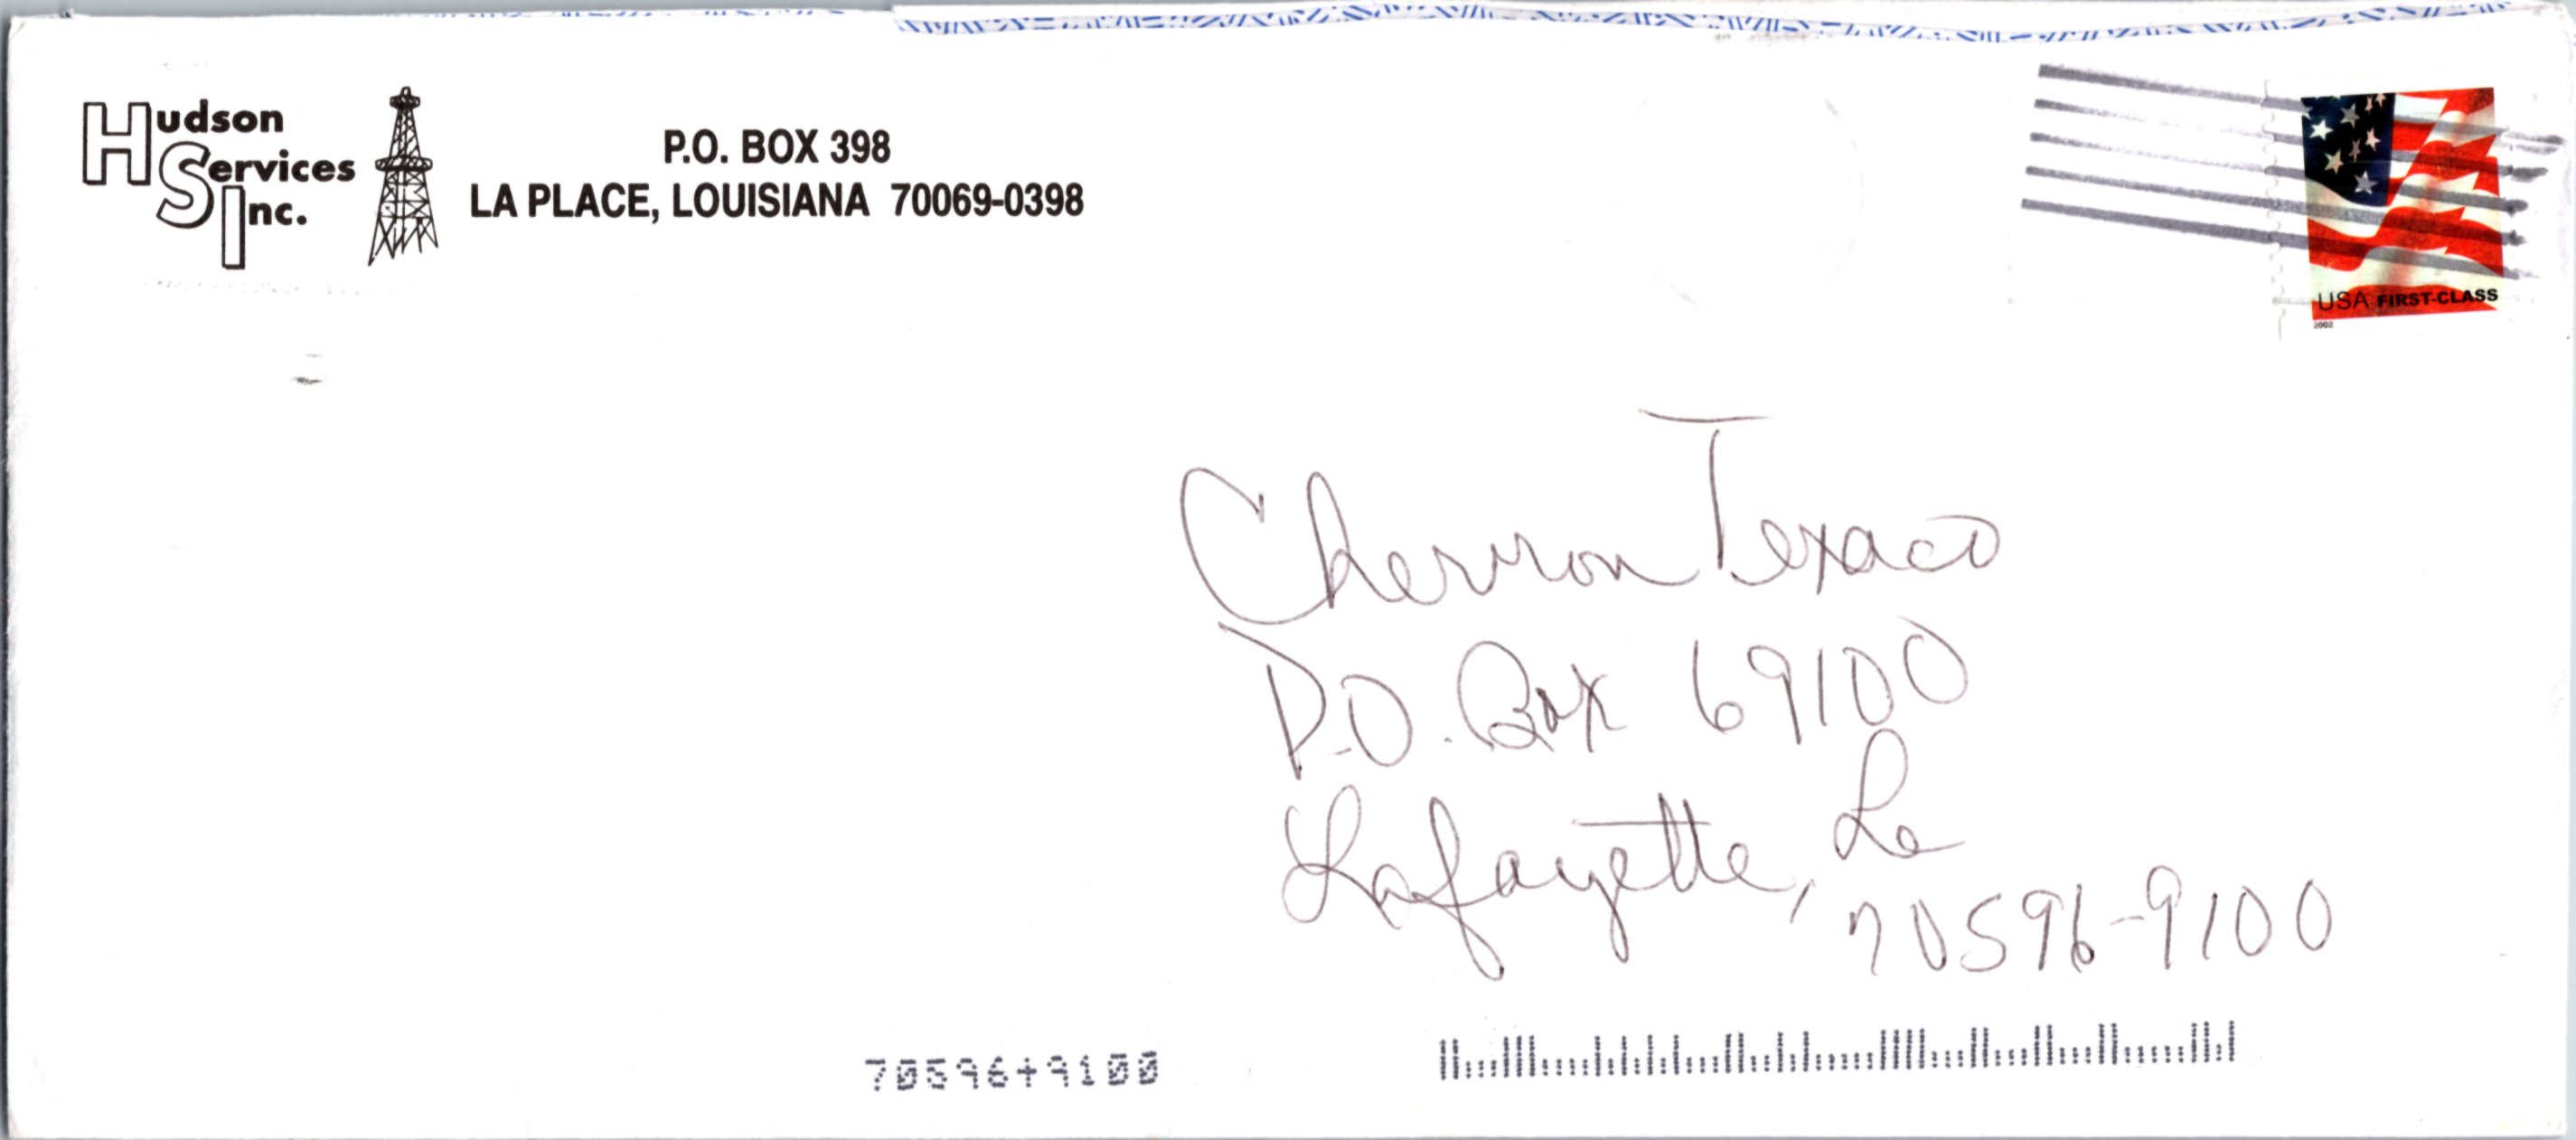 Hudson
Services
Inc.
P.O. BOX 398
LA PLACE, LOUISIANA 70069-0398
USA FIRST-CLASS
2002
Chevron Texaco
P.O. Box 69100
Lafayette, La
70596-9100
70596+9100